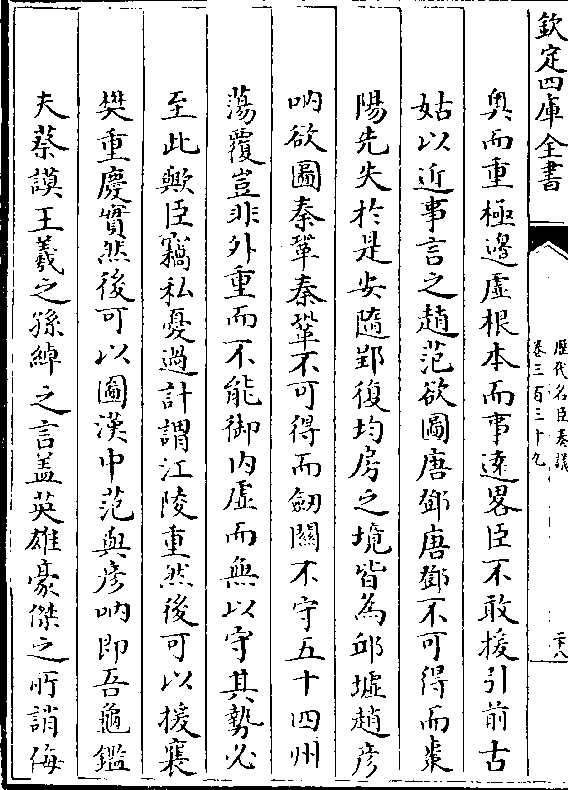 欽定四庫全書
歷代名臣奏議
卷三百三十九
二十八
奥而重極邊虚根本而事逺畧臣不敢援引前古
姑以近事言之趙范欲圖唐鄧唐鄧不可得而棗
陽先失於是安隨郢復均房之境皆為邱墟趙彦
吶欲圖秦鞏秦鞏不可得而劒關不守五十四州
蕩覆豈非外重而不能御内虚而無以守其勢必
至此歟臣竊私憂過計謂江陵重然後可以援襄
樊重慶實然後可以圖漢中范與彦吶即吾龜鑑
夫蔡謨王羲之孫綽之言盖英雄豪傑之所誚侮